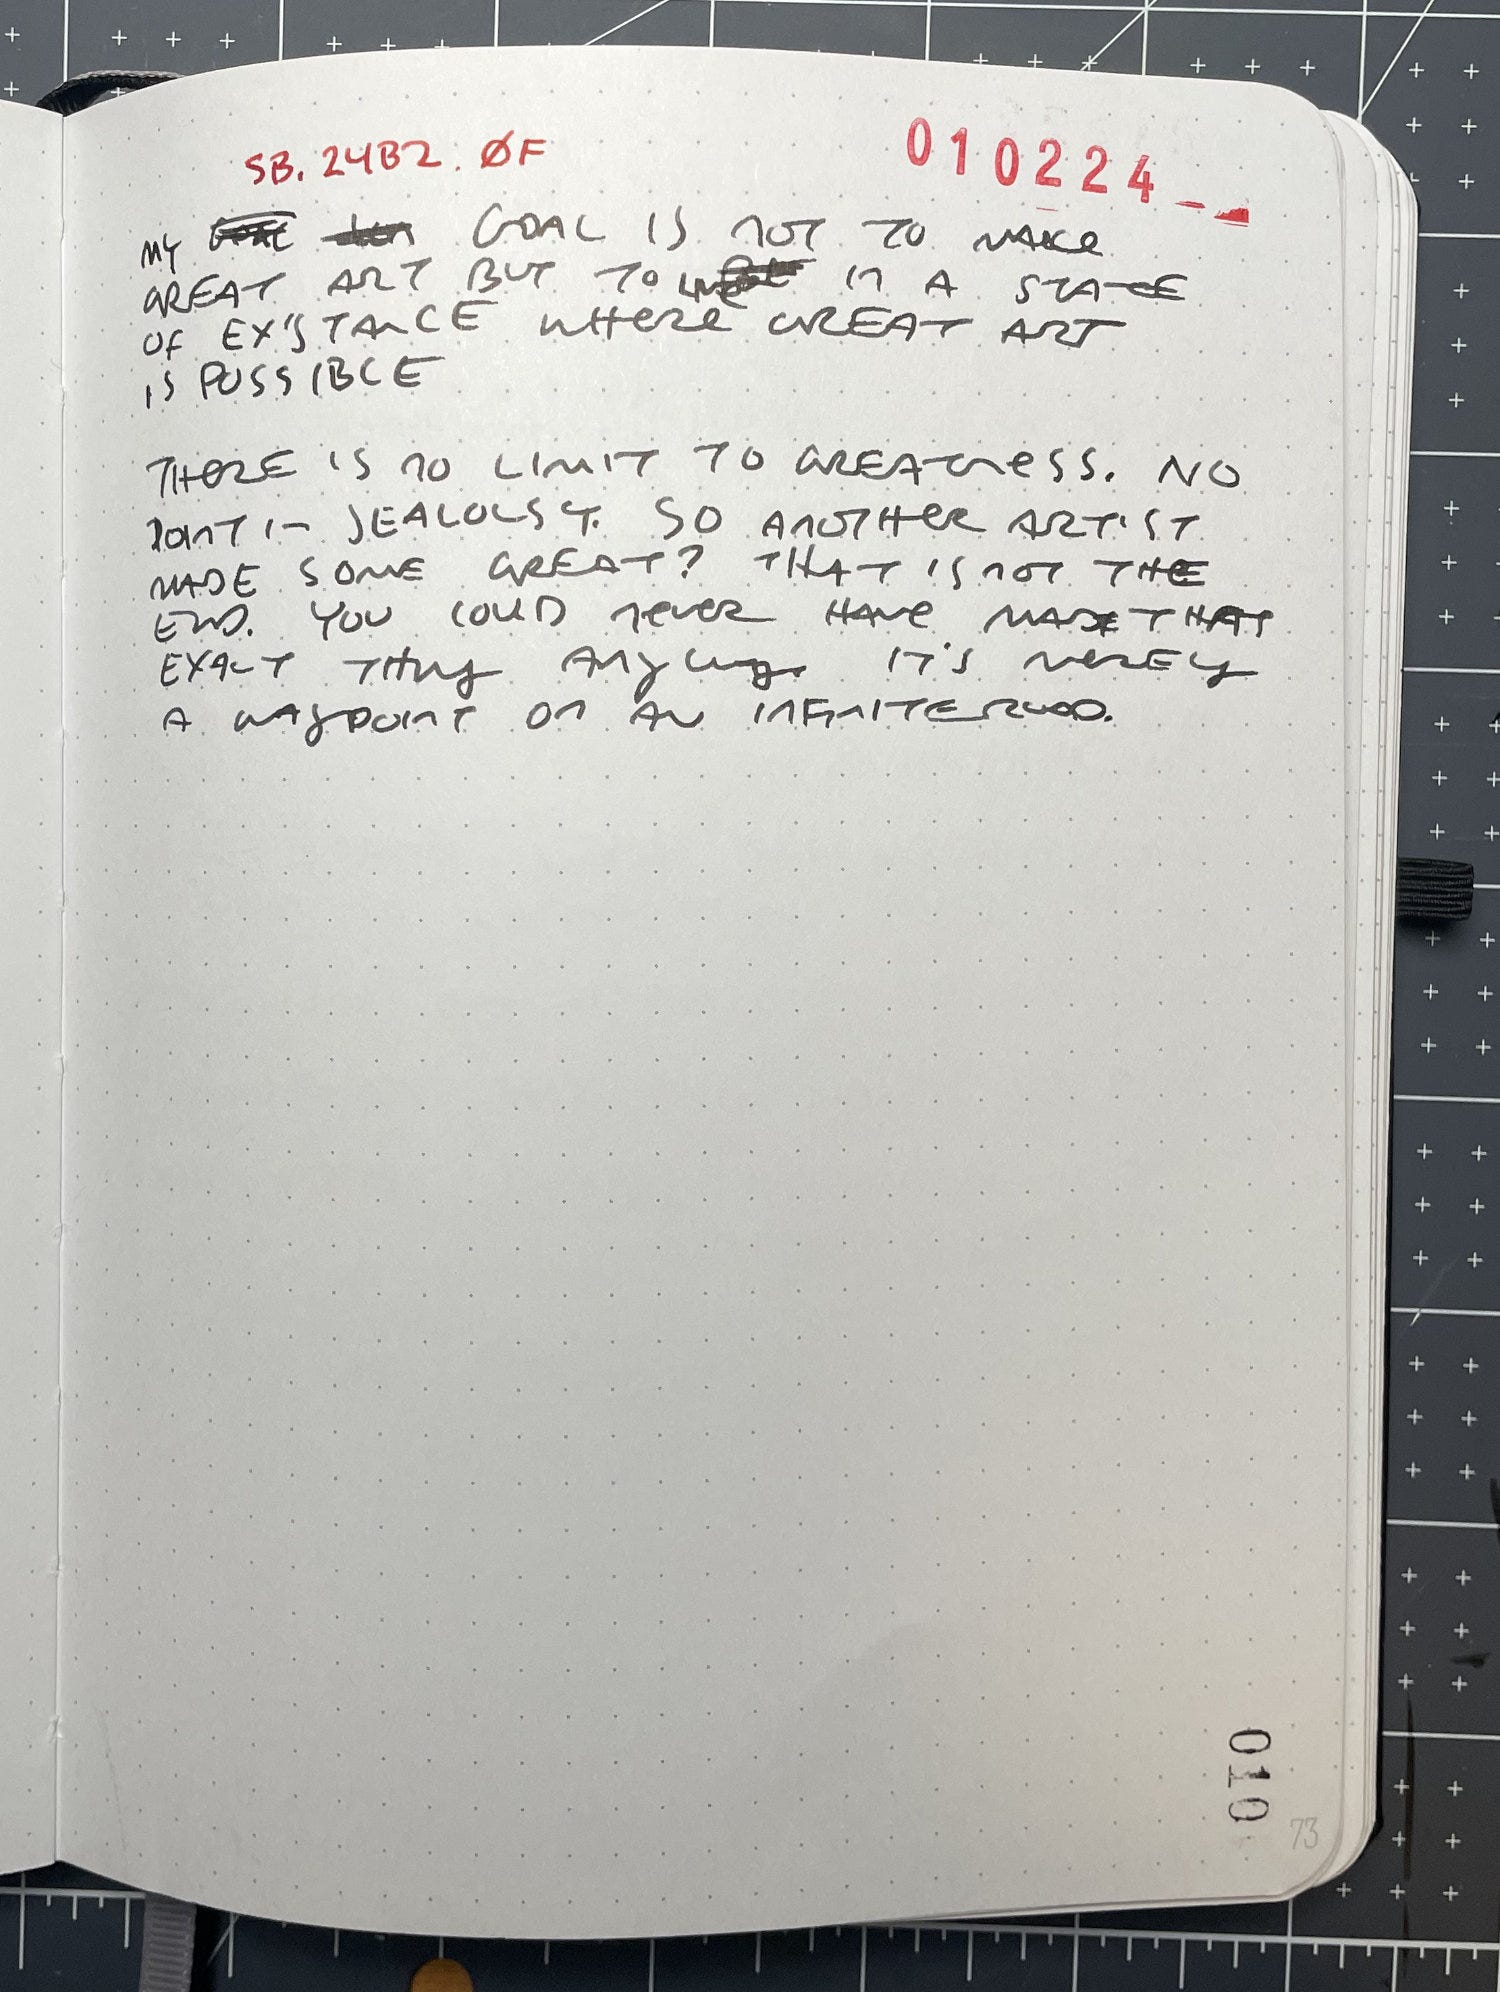 SB. 24B2. ØF
010224__
MY GOAL IS NOT TO MAKE
GREAT ART BUT TO LIVE IN A STATE
OF EXISTANCE WHERE GREAT ART
IS POSSIBLE
THERE IS NO LIMIT TO GREATNESS. NO
POINT IN JEALOUSY. SO ANOTHER ARTIST
MADE SOME GREAT? THAT IS NOT THE
END. YOU COULD NEVER HAVE MADE THAT
EXACT THING ANYWAY. IT'S MERELY
A WAYPOINT ON AN INFINITE ROAD.
010
73